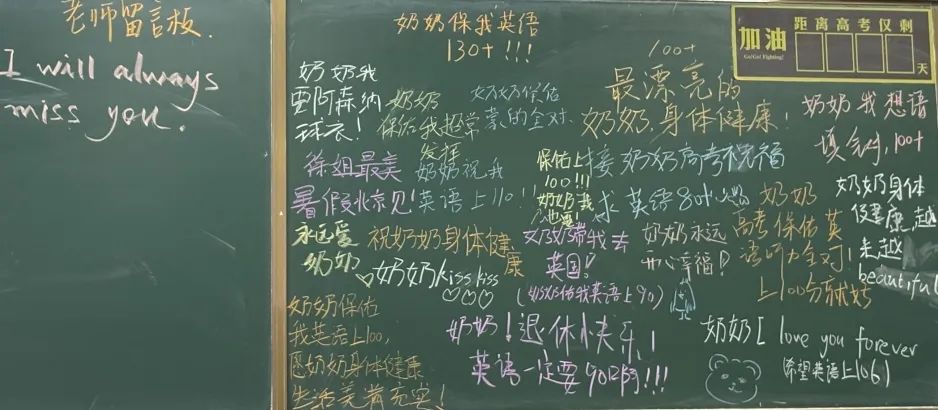 老师留言板.
I will always
miss you.
奶奶保我英语
130+!!!
奶奶我
要阿森纳
球衣!
奶奶
保佑我超常
发挥
奶奶保佑
蒙的全对.
100+
最漂亮的
奶奶,身体健康!
加油
Go!Go! Fighting!
距离高考仅剩
天
奶奶我想语
填全对,100+
徐姐最美
暑假北京见!
奶奶祝我
英语上110!!
保佑上
100!!!
奶奶我
也要!
接奶奶高考祝福
求英语80
奶奶
高考保佑英
语听力全对!
上100分就好
奶奶身体
健康,越
来越
beautiful
永远爱
奶奶
祝奶奶身体健
康
奶奶kiss kiss
奶奶带我去
英国!
奶奶永远
开心幸福!
(奶奶保佑我英语上90)
奶奶保佑
我英语上100,
愿奶奶身体健康
生活美满充实!
奶奶!退休快乐!
英语一定要90啊!!!
奶奶I love you forever
(希望英语上106)